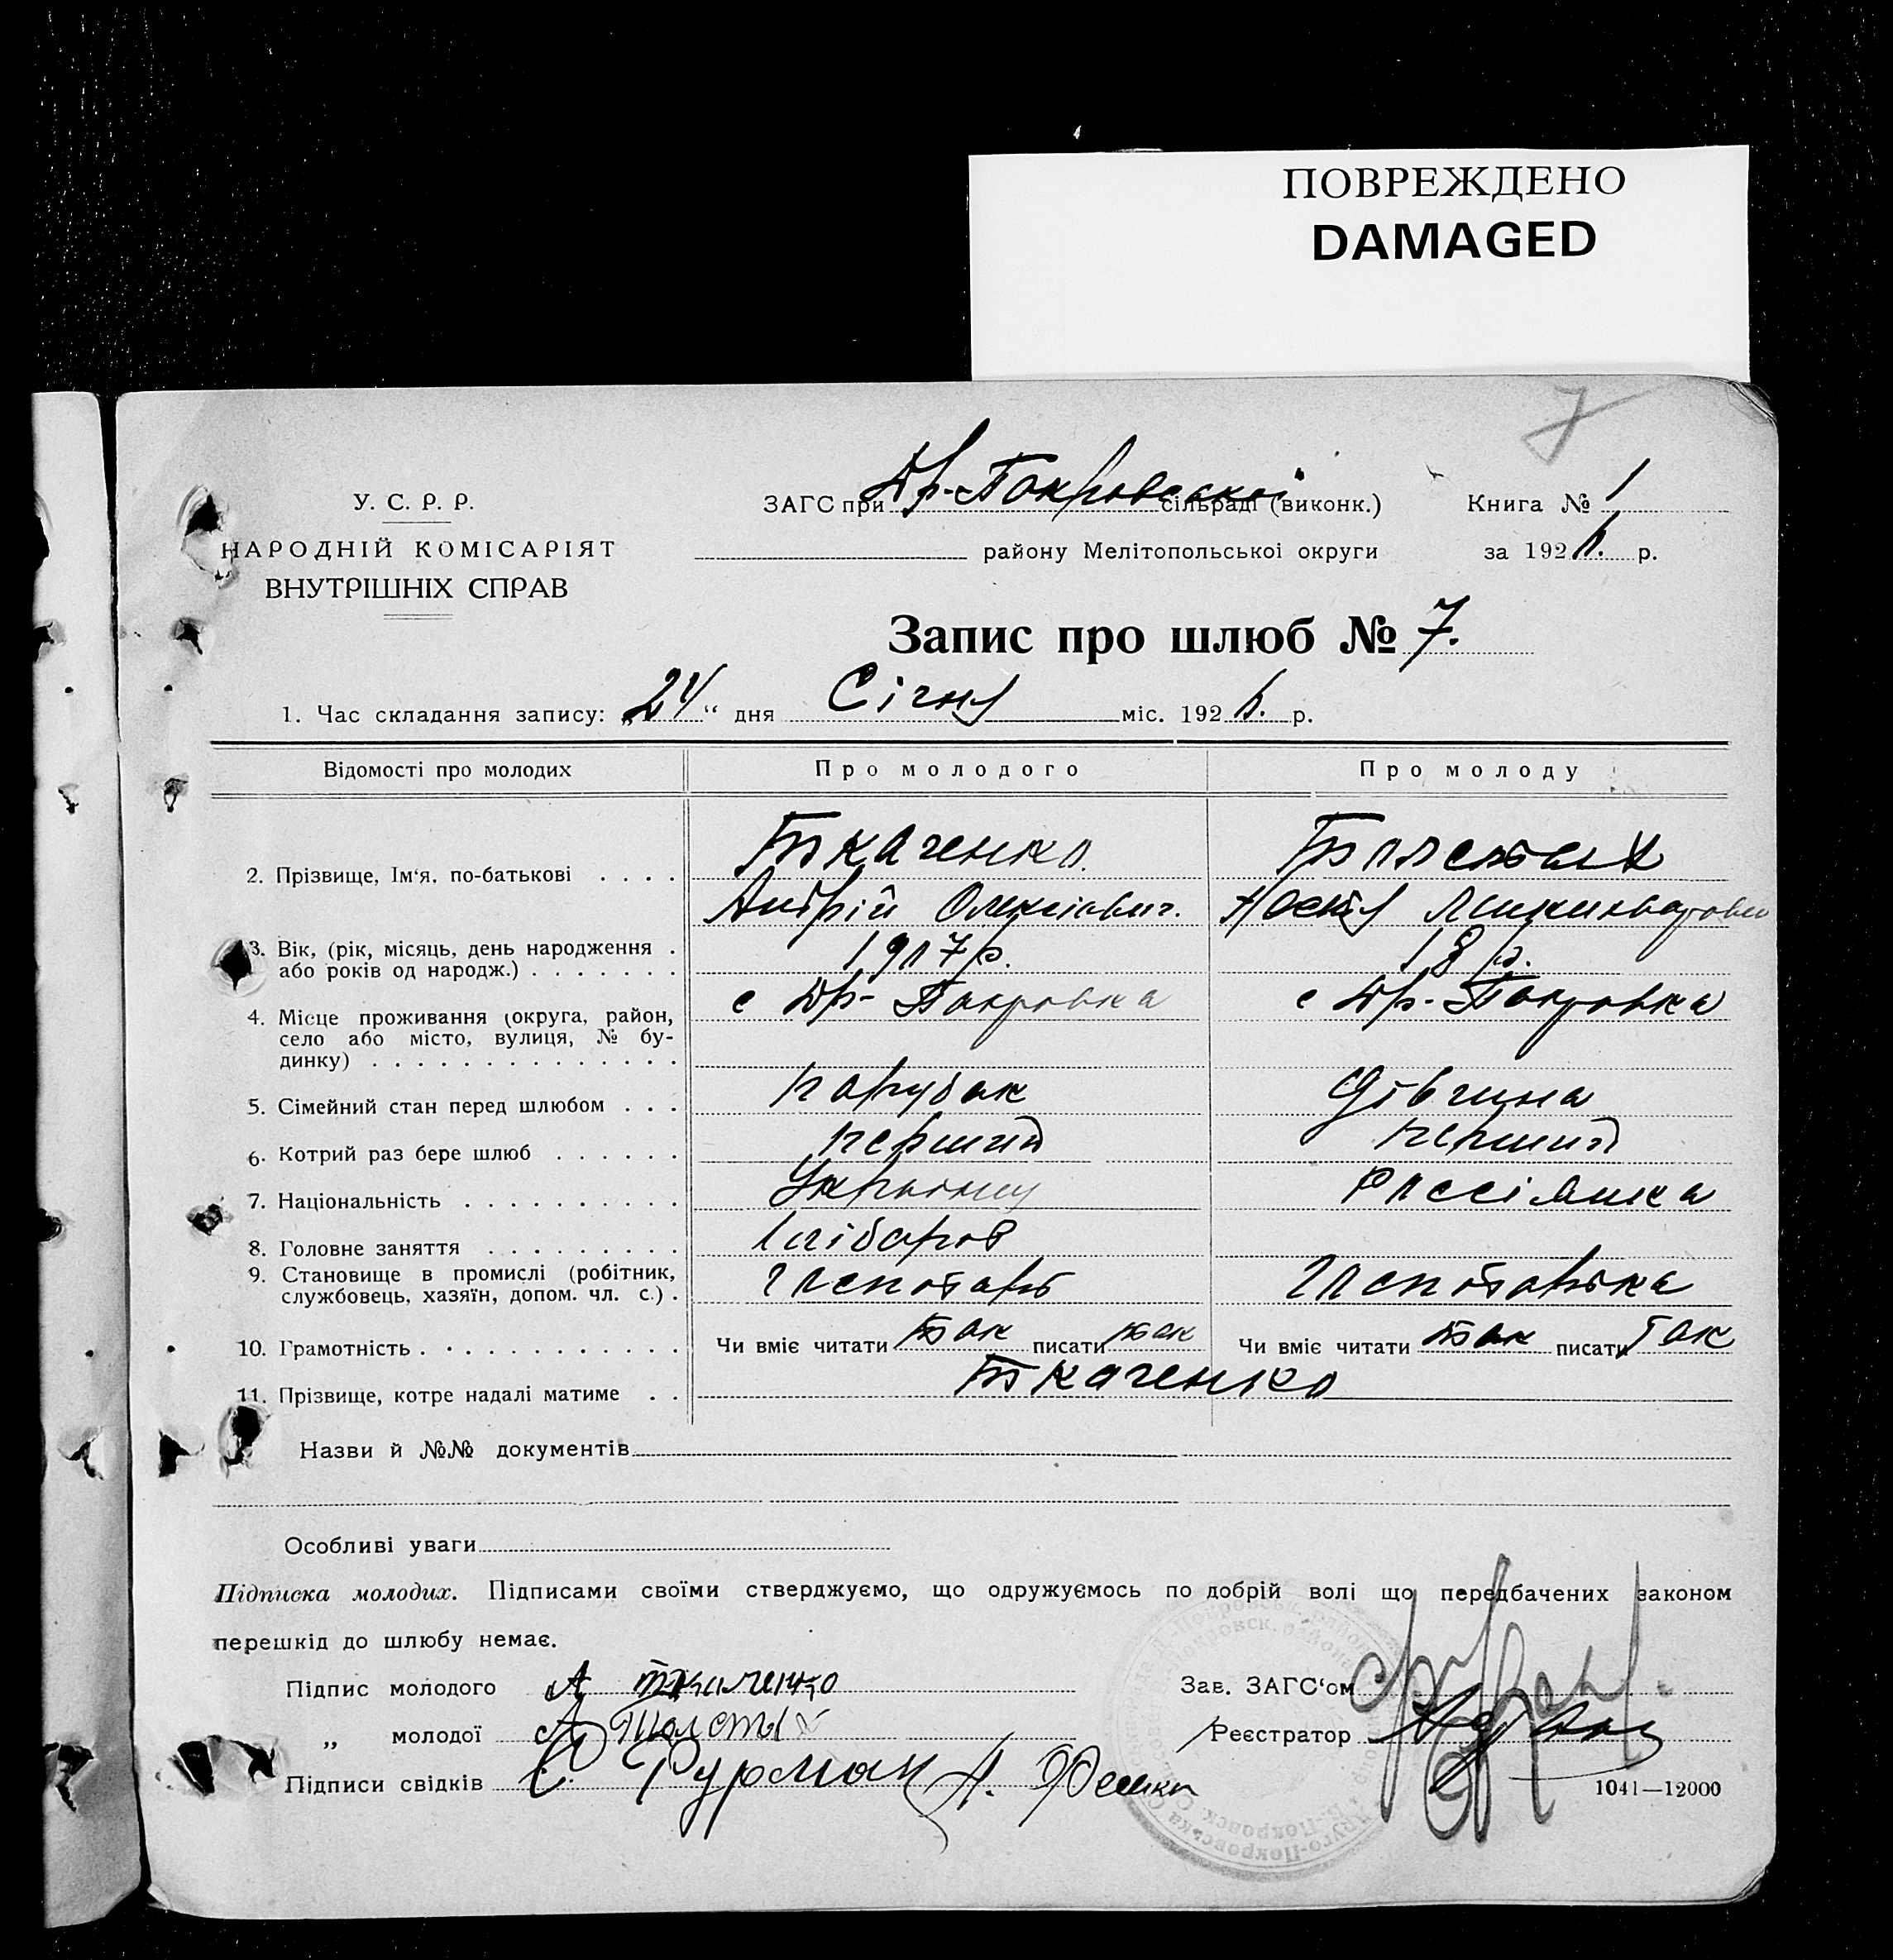 ПОВРЕЖДЕНО
DAMAGED
7
У. С. Р. Р.
НАРОДНІЙ КОМІСАРІЯТ
ВНУТРІШНІХ СПРАВ
ЗАГС при Др-Покровської сільраді (виконк.)
району Мелітопольської округи
Книга № 1
за 192 р.
Запис про шлюб № 7.
1. Час складання запису: „24“ дня Січня міс. 192 р.
Відомості про молодих Про молодого Про молоду
2. Прізвище, Ім‘я, по-батькові . . . . Ткаченко. Толстых
Андрій Олексієвич.
3. Вік, (рік, місяць, день народження . або років од народж.) . . . . . . . 1907р. 18 р.
4. Місце проживання (округа, район, с Др- Покровка с Др-Покровка
село або місто, вулиця, № бу-
динку) . . . . . . . . . . . . . .
5. Сімейний стан перед шлюбом . . . парубак дівчина
6. Котрий раз бере шлюб . . . . . . перший перший
7. Національність . . . . . . . . . . Россіянка
8. Головне заняття . . . . . . . . . хлібороб
9. Становище в промислі (робітник,
службовець, хазяїн, допом. чл. с.) . господарь господарька
10. Грамотність . . . . . . . . . . . Чи вміє читати так писати так Чи вміє читати так писати так
11. Прізвище, котре надалі матиме . . Ткаченко
Назви й №№ документів
Особливі уваги
Підписка молодих. Підписами своїми стверджуємо, що одружуємось по добрій волі що передбачених законом
перешкід до шлюбу немає.
Підпис молодого А ткаченко
„ молодої Толстых
Підписи свідків
Зав. ЗАГС‘ом
Реєстратор
1041—12000